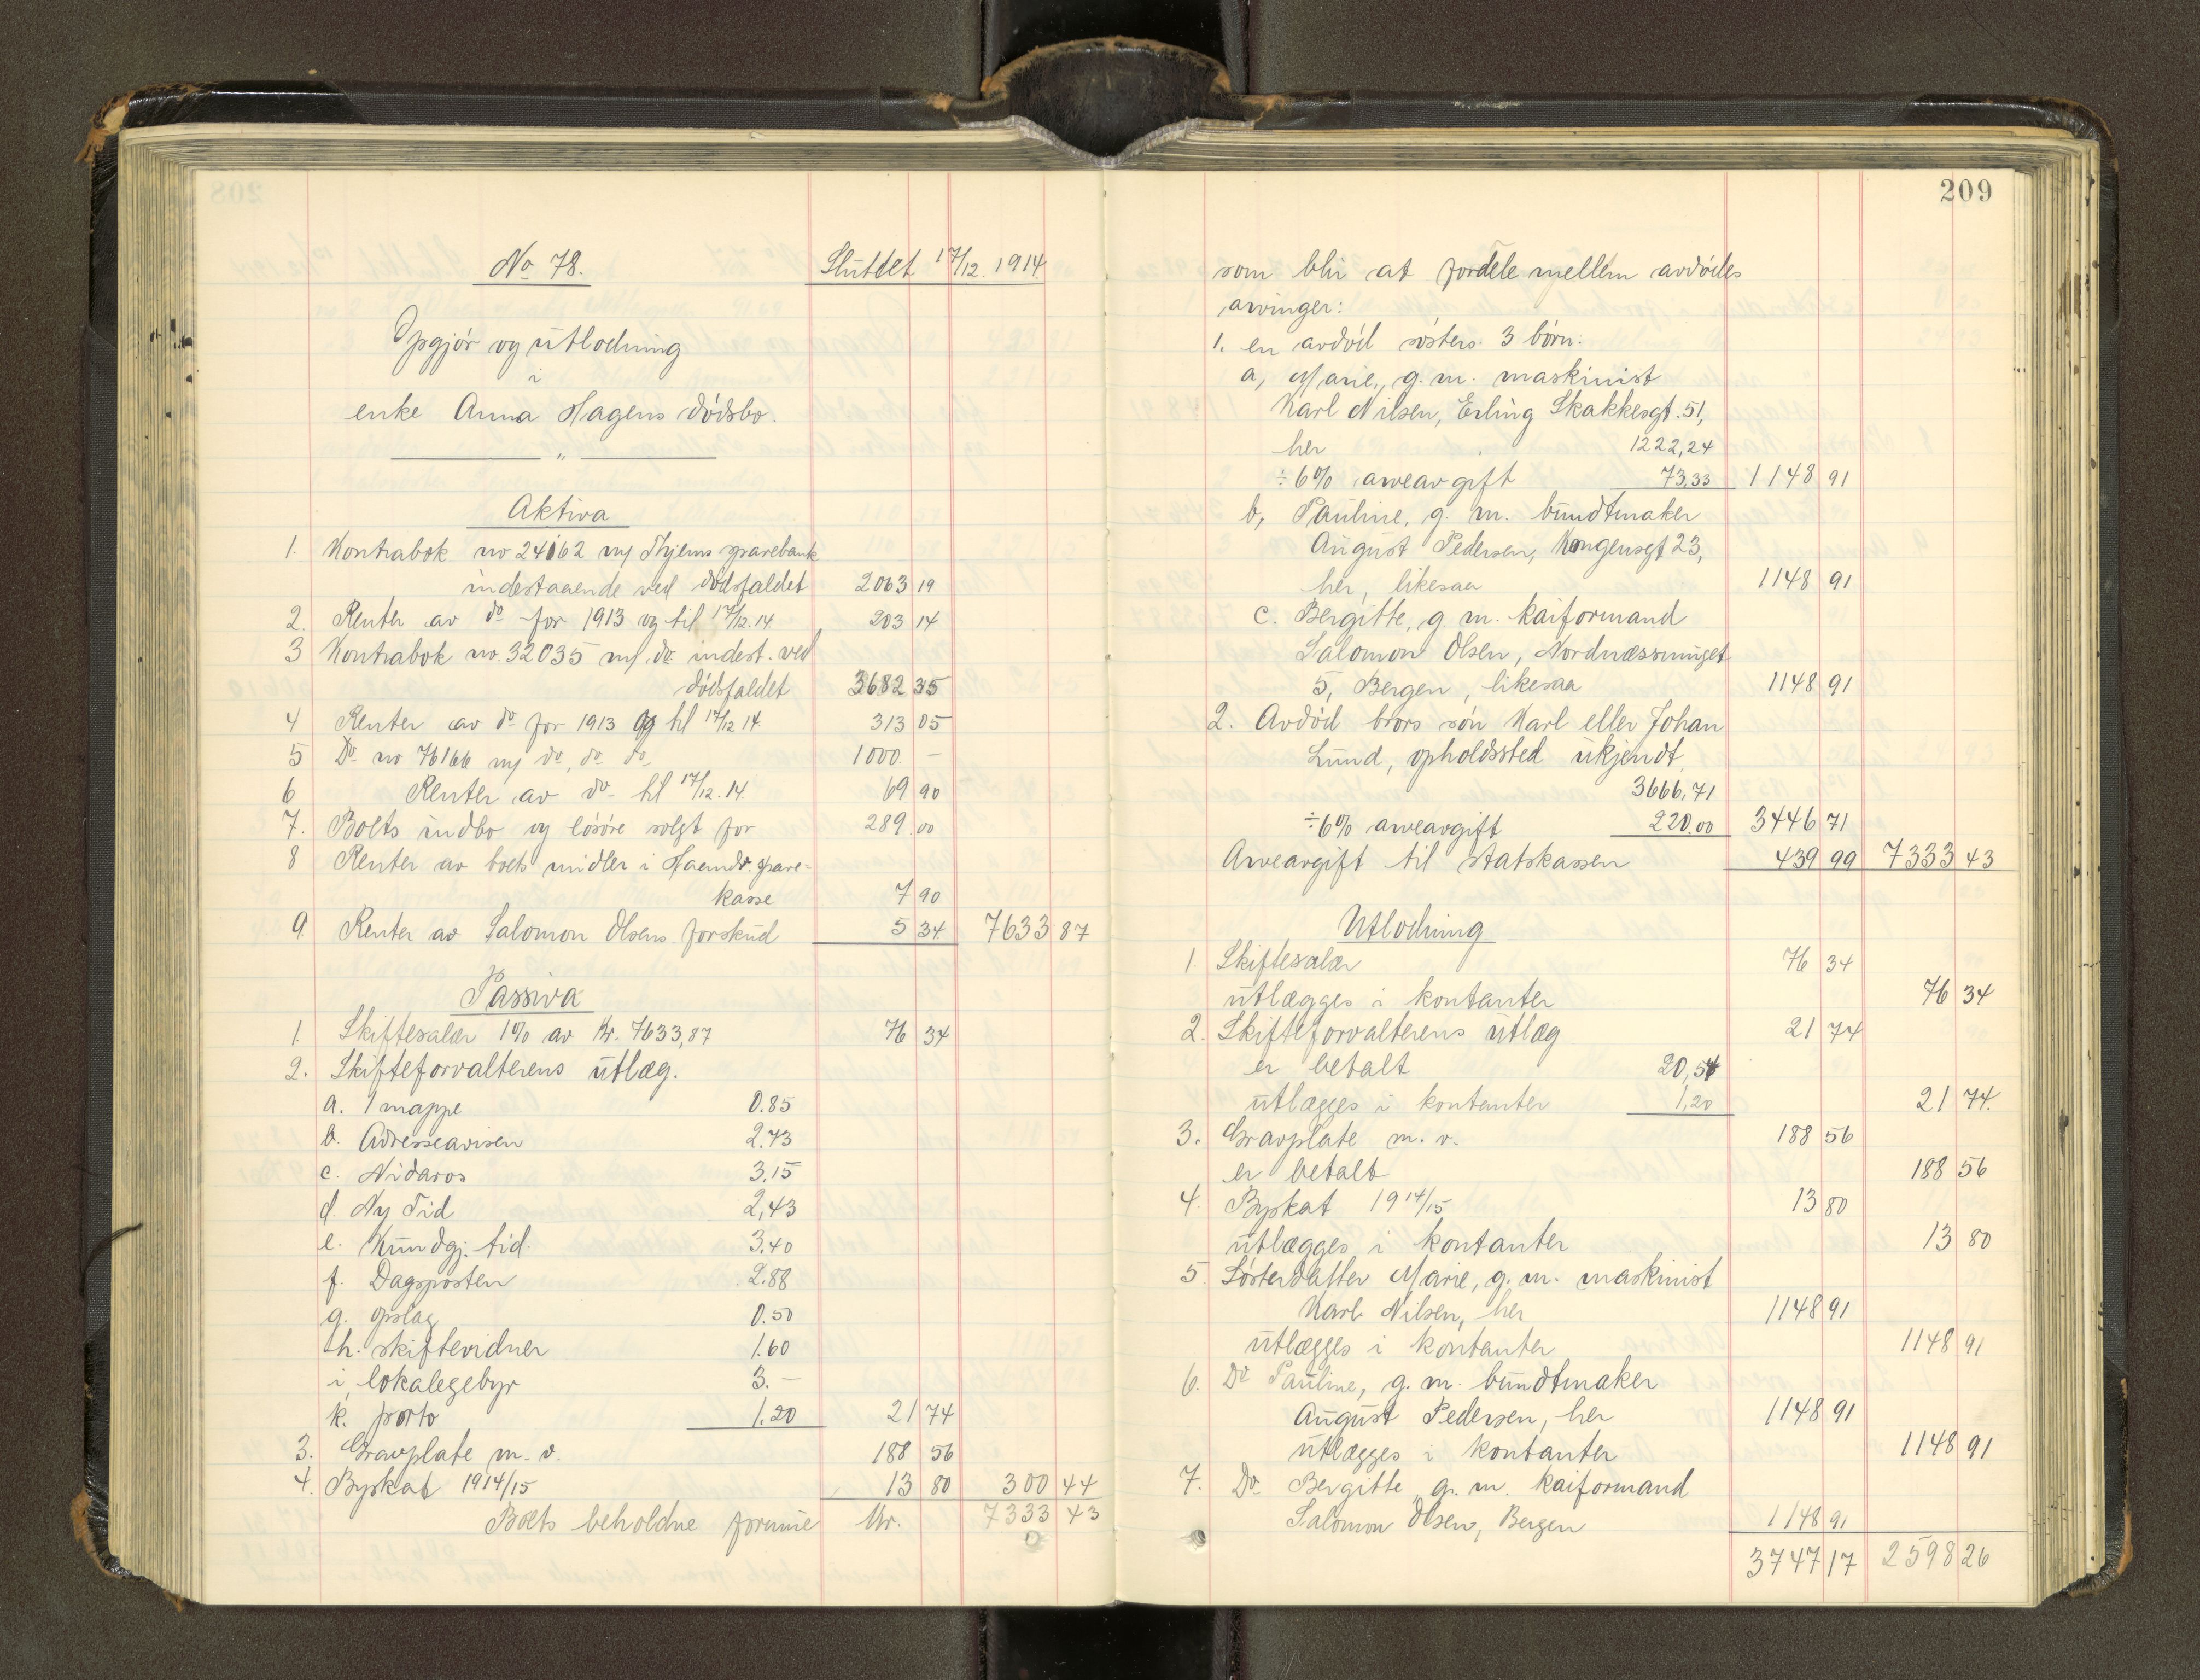 No 78. Sluttet 17/12. 1914.
Opgjör og utlodning
i
enke Anna Hagens dödsbo.
"
Aktiva
1. Kontrabok no 24162 m/ Thjems sparebank
indestaaende ved dödsfaldet 2063 19
2. Renter av do for 1913 og til 17/12.14. 203 14
3 Kontrabok no. 32035 m/ do. indest. ved
dödsfaldet 3682 35
4 Renter av do for 1913 og til 17/12 14. 313 05
5 Do no 76166 m/ do, do do 1000 -
6 Renter av do til 17/12.14. 69 90
7. Boets indbo og lösöre solgt for 289 00
8 Renter av boets midler i Haandv. spare=
kasse 7 90
9. Renter av Salomon Olsens forskud 5 34. 7633 87
Passiva
1. Skiftesalær 1% av Kr. 7633,87 76 34
2. Skifteforvalterens utlæg.
a. 1 mappe 0.85
b. Adresseavisen 2.73
c. Nidaros 3.15
d. Ny Tid 2,43
e. Kundgj. tid. 3.40
f. Dagsposten 2.88
g. opslag 0.50
h. skiftevidner 1.60
i, lokalegebyr 3.-
k. porto 1.20 21 74
3. Gravplate m. v. 188 56
4. Byskat 1914/15 13 80 300 44
Boets beholdne formue Kr. 7333 43
209
som blir at fordele mellem avdödes
arvinger:
1. en avdöd sösters 3 börn:
a, Marie, g. m. maskinist
Karl Nilsen, Erling Skakkesgt. 51,
her 1222,24
÷ 6% arveavgift 73,33 1148 91
b, Pauline, g. m. bundtmaker
August Pedersen, Kongensgt 23,
her, likesaa 1148 91
c. Bergitte, g. m. kaiformand
Salomon Olsen, Nordnæssmuget
5, Bergen, likesaa 1148 91
2. Avdöd brors sön Karl eller Johan
Lund, opholdssted ukjendt
3666,71
÷ 6% arveavgift 220.00 3446 71
Arveavgift til statskassen 439 99 7333 43
Utlodning
1. Skiftesalær 76 34
utlægges i kontanter 76 34
2. Skifteforvalterens utlæg 21 74
er betalt 20,54
utlægges i kontanter 1,20 21 74.
3. Gravplate m. v. 188 56
er betalt 188 56
4. Byskat 1914/15 13 80
utlægges i kontanter 13 80
5. Sösterdatter Marie, g. m. maskinist
Karl Nilsen, her 1148 91
utlægges i kontanter 1148 91
6. Do Pauline, g. m. bundtmaker
August Pedersen, her 1148 91
utlægges i kontanter 1148 91
7. Do Bergitte, g. m. kaiformand
Salomon Olsen, Bergen 1148 91
3747 17 2598 26